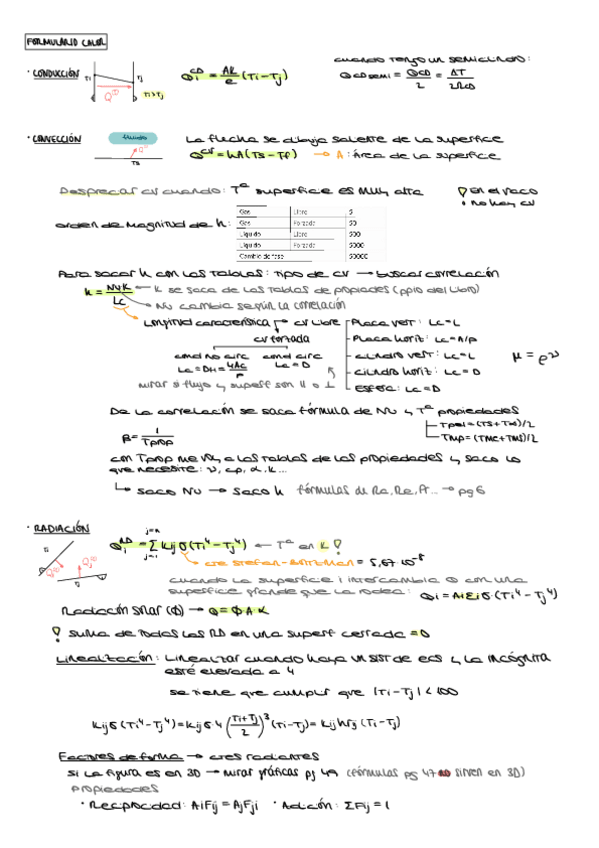 FORMULARIO CALOR
· CONDUCCIÓN
Ti
Tj
Q
Ti>Tj
Q̇i^CD = AK/e (Ti - Tj)
cuando tengo un semicilindro:
Q CD semi = QCD/2 = ΔT/2RCD
· CONVECCIÓN
fluido
Ts
La flecha se dibuja saliente de la superficie
Q^CV = hA(Ts - Tf) → A: Área de la superficie
Despreciar cv cuando: Tª superficie es muy alta
! en el vacío no hay cv
orden de magnitud de h:
Gas Libre 5
Gas Forzada 50
Líquido Libre 500
Líquido Forzada 5000
Cambio de fase 50000
Para sacar h con las tablas: tipo de cv → buscar correlación
h = Nu·K/Lc
K se saca de las tablas de propiedades (ppio del libro)
Nu cambia según la correlación
longitud característica → cv libre
Placa vert: Lc=L
Placa horiz: Lc=A/p
cilindro vert: Lc=L
cilindro horiz: Lc=D
Esfera: Lc=D
cv forzada
cond no circ Lc=DH=4Ac/P
cond circ Lc=D
mirar si flujo y superf son || o ⊥
μ = ρν
De la correlación se saca fórmula de Nu y Tª propiedades
Tpel=(Ts+T∞)/2
Tmp=(Tme+Tms)/2
β = 1/Tprop
con Tprop me voy a las tablas de las propiedades y saco lo
que necesite: ν, cp, α, K...
↳ saco Nu → saco h fórmulas de Ra, Re, Pr... → pg 6
· RADIACIÓN
Ti
Tj
Q̇i^RD = Σ Kij σ(Ti⁴ - Tj⁴) ← Tª en K !
j=n
j=1
cte Stefan-Boltzman = 5,67·10⁻⁸
cuando la superficie i intercambia Q con una
superficie grande que la rodea: Qi = Aiεiσ·(Ti⁴ - Tj⁴)
Radiación solar (Φ) → Q = Φ·A·α
! suma de todas las RD en una superf cerrada = 0
Linealización: Linealizar cuando haya un sist de ecs y la incógnita
esté elevada a 4
se tiene que cumplir que |Ti - Tj| < 100
Kijσ(Ti⁴ - Tj⁴) = Kijσ·4((Ti+Tj)/2)³(Ti - Tj) = Kij hrij (Ti - Tj)
Factores de forma → ctes radiantes
si la figura es en 3D → mirar gráficas pg 49 (fórmulas pg 47 no sirven en 3D)
propiedades
· Reciprocidad: AiFij = AjFji · Adición: ΣFij = 1